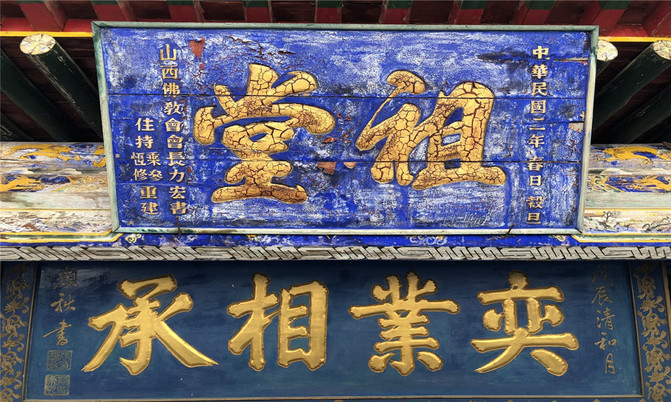 中華民國二年春日 穀旦
祖堂
山西佛教會會長力宏書
住持乘參恆修重建
辰清和月
奕業相承
秋書